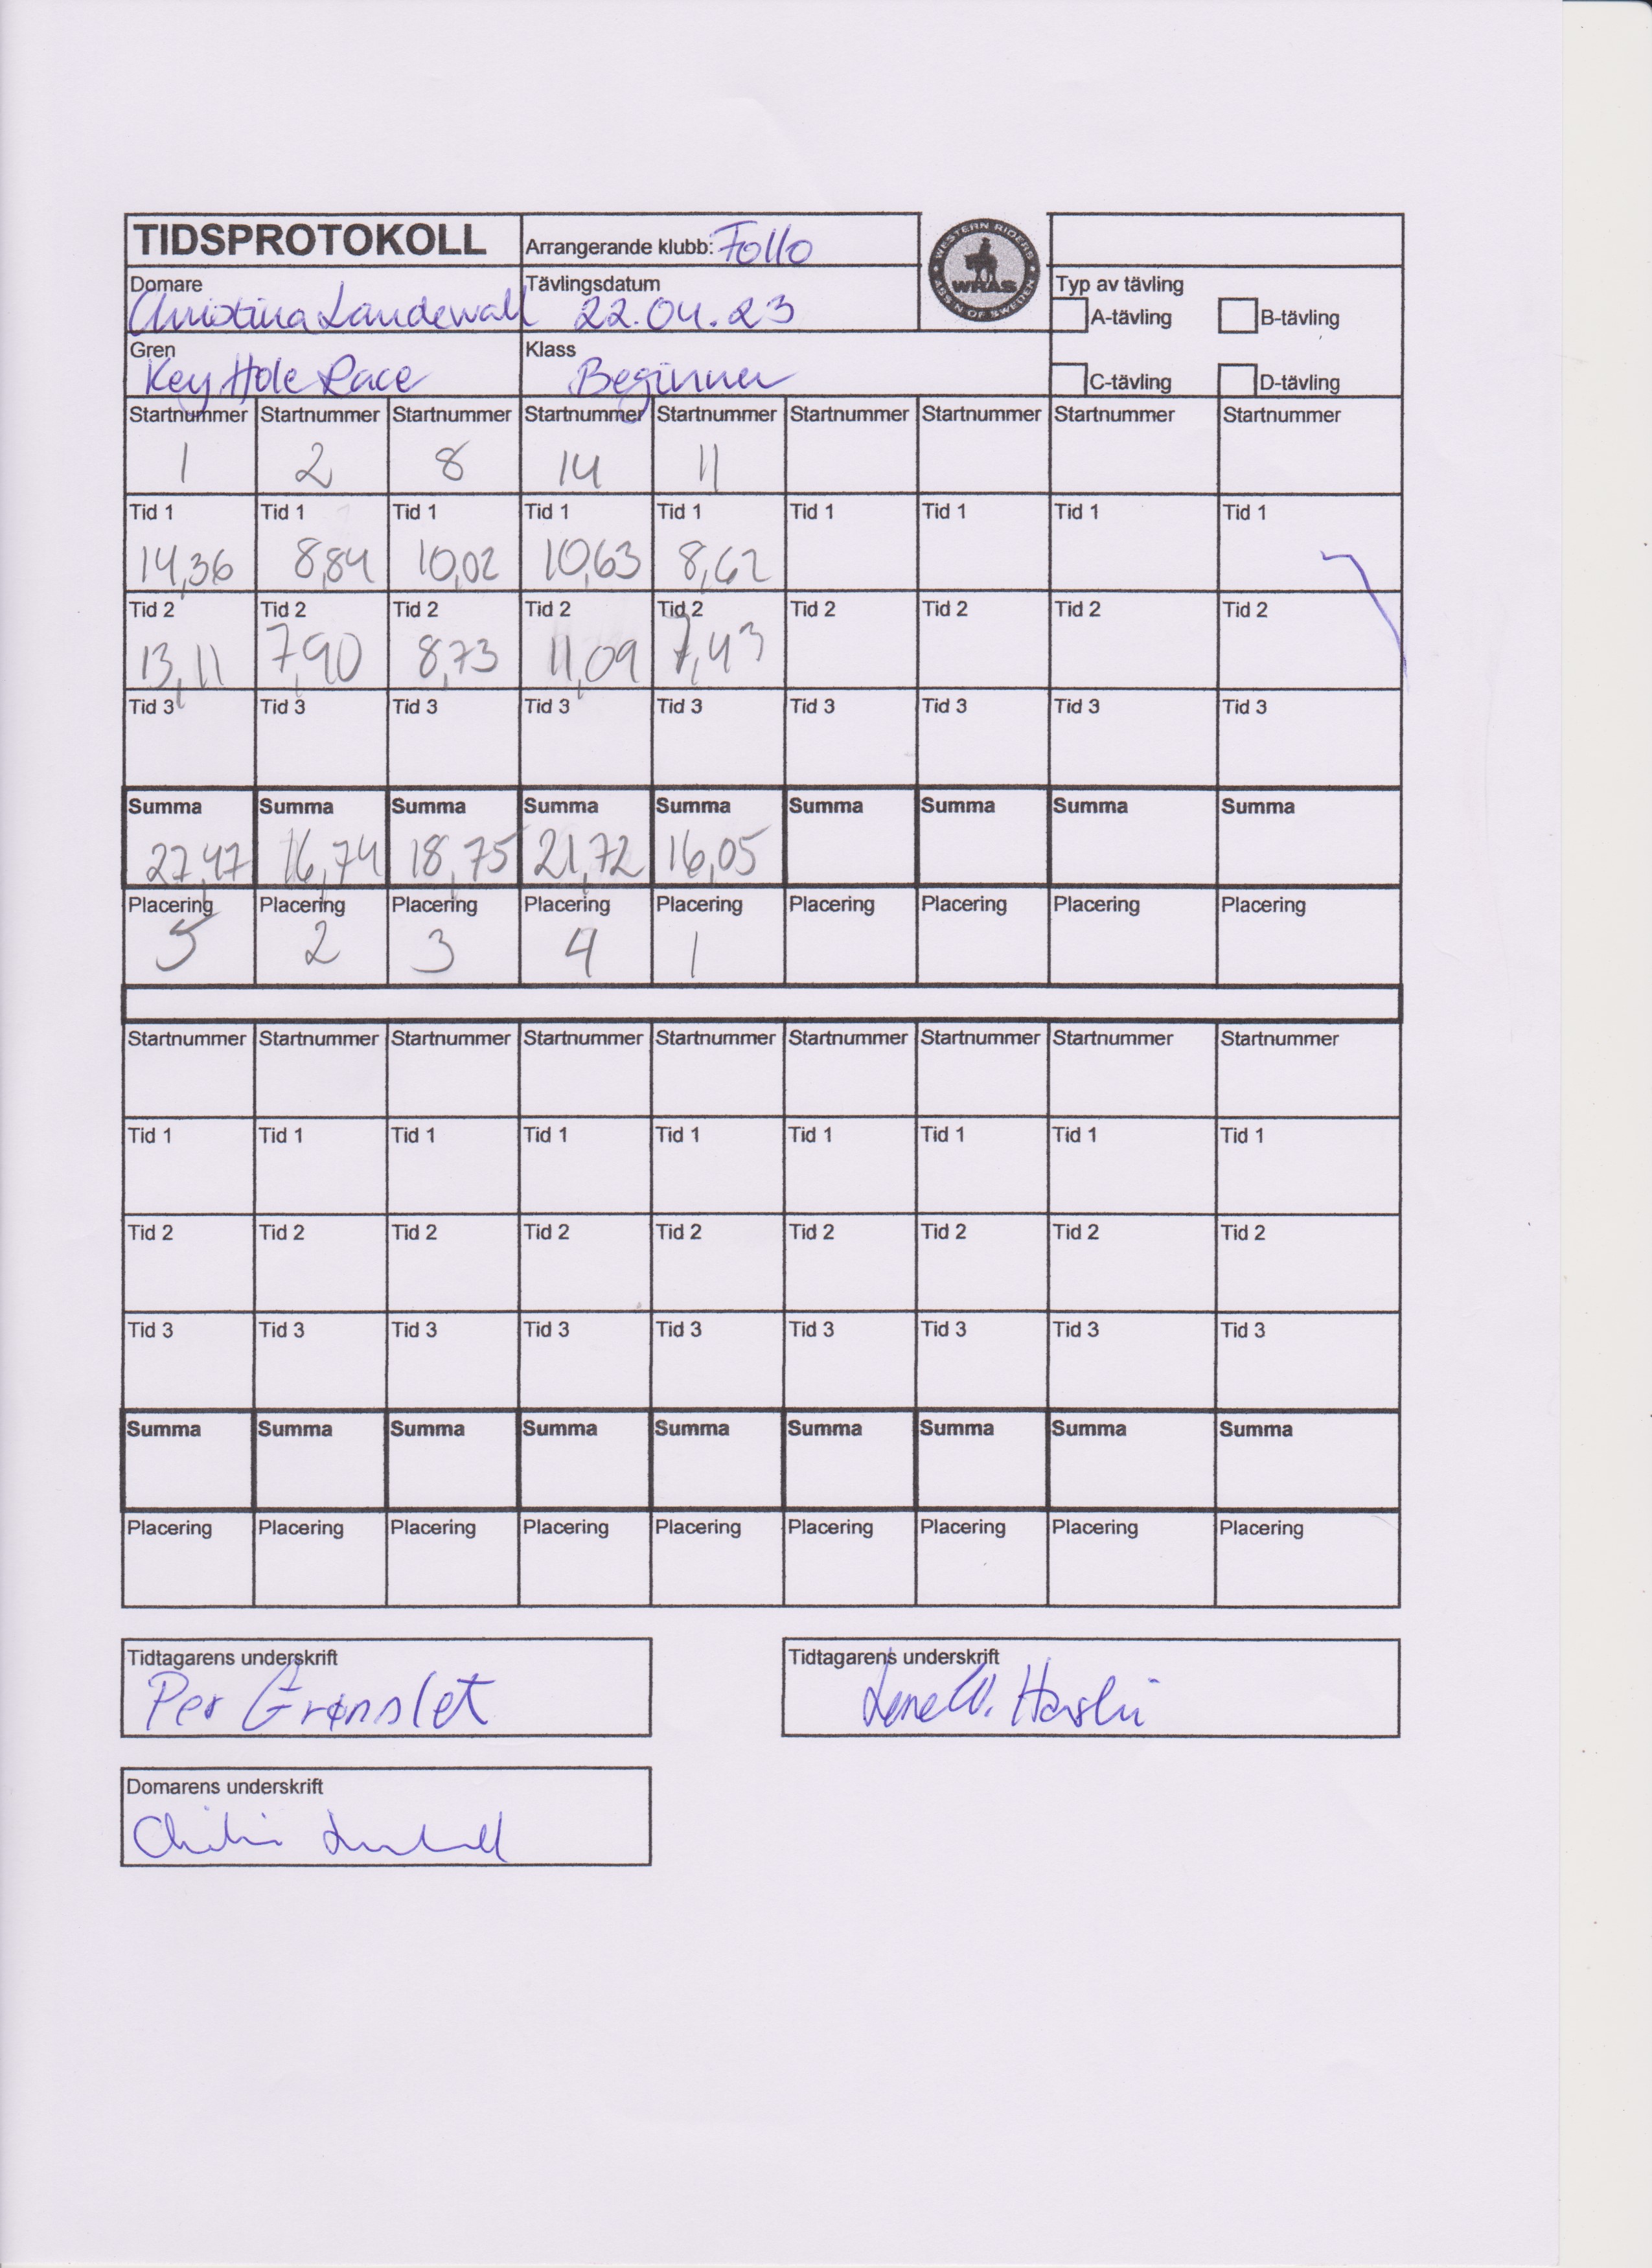 TIDSPROTOKOLL Arrangerande klubb: Follo
WESTERN RIDERS ASS'N OF SWEDEN
WRAS
Domare Tävlingsdatum Typ av tävling
Christina Landewall 22.04.23 A-tävling B-tävling
Gren Klass
Key Hole Race Beginner C-tävling D-tävling
Startnummer Startnummer Startnummer Startnummer Startnummer Startnummer Startnummer Startnummer Startnummer
1 2 8 14 11
Tid 1 Tid 1 Tid 1 Tid 1 Tid 1 Tid 1 Tid 1 Tid 1 Tid 1
14,36 8,84 10,02 10,63 8,62
Tid 2 Tid 2 Tid 2 Tid 2 Tid 2 Tid 2 Tid 2 Tid 2 Tid 2
13,11 7,90 8,73 11,09 7,43
Tid 3 Tid 3 Tid 3 Tid 3 Tid 3 Tid 3 Tid 3 Tid 3 Tid 3
Summa Summa Summa Summa Summa Summa Summa Summa Summa
27,47 16,74 18,75 21,72 16,05
Placering Placering Placering Placering Placering Placering Placering Placering Placering
5 2 3 4 1
Startnummer Startnummer Startnummer Startnummer Startnummer Startnummer Startnummer Startnummer Startnummer
Tid 1 Tid 1 Tid 1 Tid 1 Tid 1 Tid 1 Tid 1 Tid 1 Tid 1
Tid 2 Tid 2 Tid 2 Tid 2 Tid 2 Tid 2 Tid 2 Tid 2 Tid 2
Tid 3 Tid 3 Tid 3 Tid 3 Tid 3 Tid 3 Tid 3 Tid 3 Tid 3
Summa Summa Summa Summa Summa Summa Summa Summa Summa
Placering Placering Placering Placering Placering Placering Placering Placering Placering
Tidtagarens underskrift Tidtagarens underskrift
Per Grønslet Lene W.
Domarens underskrift